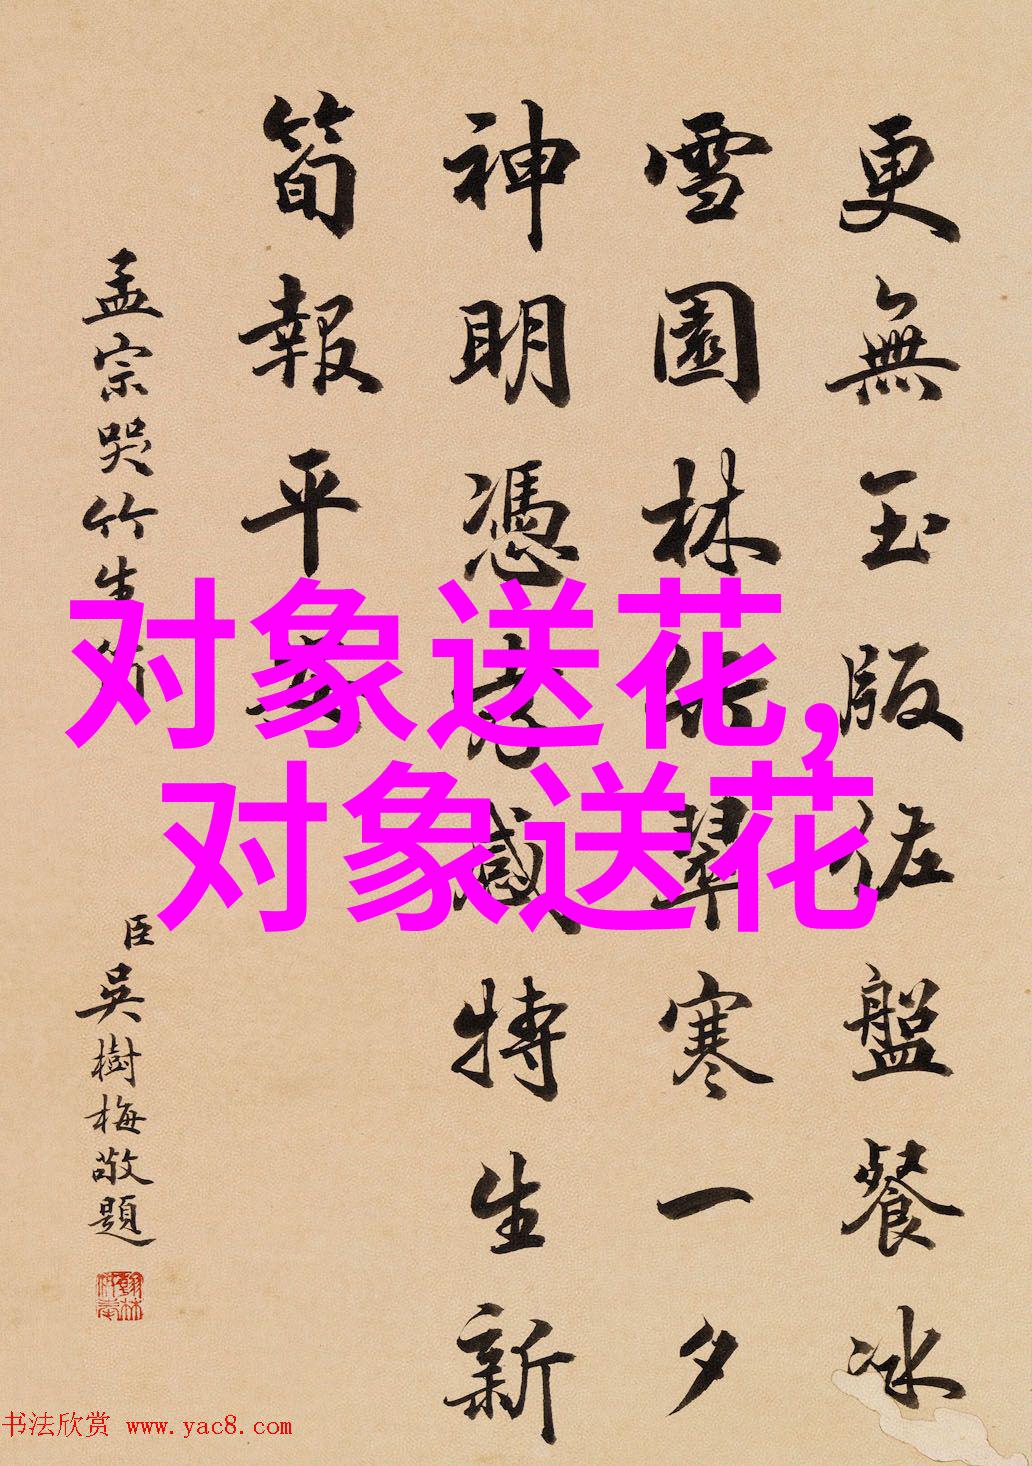 对象送花,
对象送花
更無玉版佐盤餐冰
雪園林竹翠寒一夕
神明憑孝感特生新
筍報平安
孟宗哭竹生筍
臣吳樹梅敬題
翰林供奉
书法欣赏 www.yac8.com